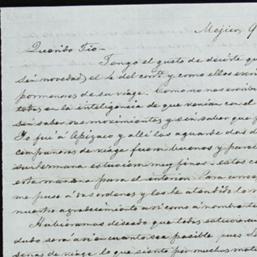 Mejico, 9
Querido Tio—
Tengo el gusto de decirte q
sin novedad, el 4 del corte. y como ellos escri
pormenores de su viage. Como no nos escribi
todos en la inteligencia de que venian con el
sin saber sus movimientos, y sin saber que p
Yo fui á Apizaco y alli los aguarde dos d
compañeros de viage fueron buenos y para
su hermana estuvieron muy finos. Estos ca
esta mañana para el interior. Para corres
me puse á sus ordenes y los he atendido lo m
nuestro agradecimiento asi como á nombre de
Hubieramos deseado que todos estuvieran
dudo será asi en cuanto sea posible pues l
de viage, lo que siento por muchos mot